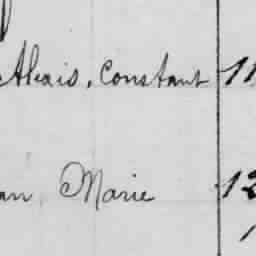 Alexis, Constant 11
an Marie 12